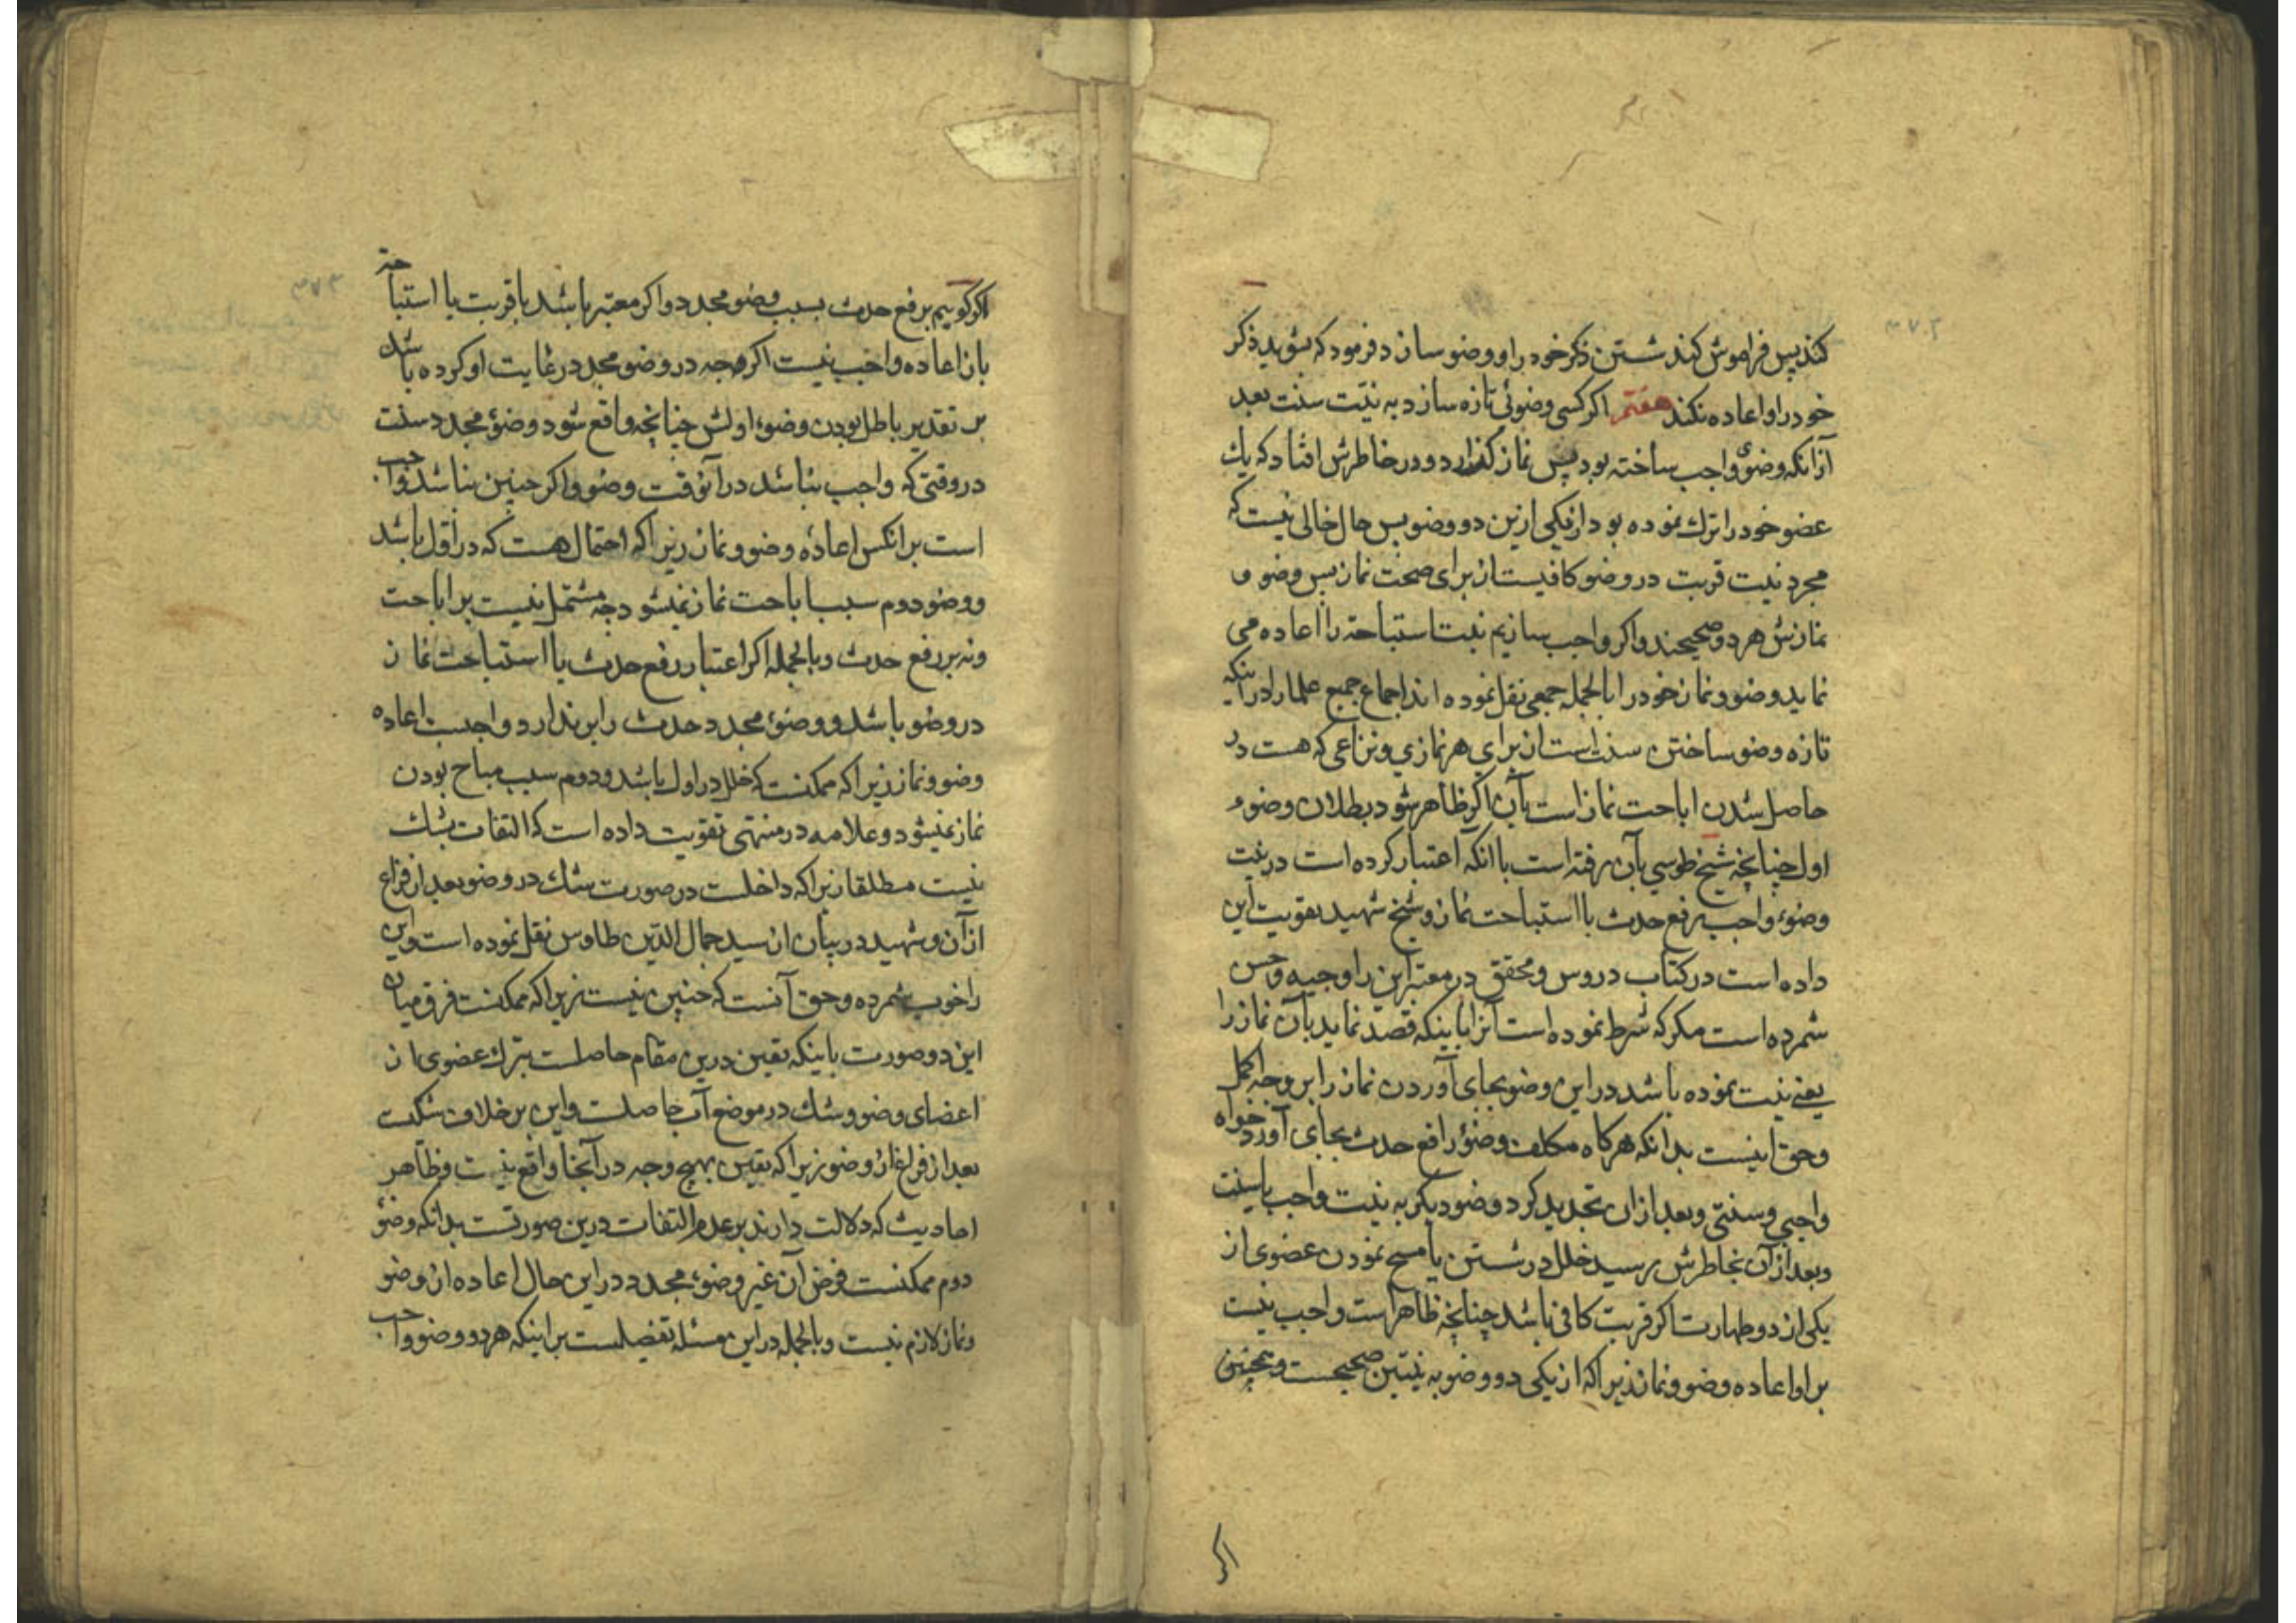 کند پس فراموش کند شستن ذکر خود را و وضو سازد فرمود که بشوید ذکر
خود را و اعاده نکند هفتم اکر کسی وضوئی تازه سازد به نیّت سنت بعد
از آنکه وضوئ واجب ساخته بود پس نماز کذارد و در خاطرش افتاد که یك
عضو خود را ترك نموده بود از یکی ازین دو وضو پس حال خالی نیست که
مجرد نیت قربت در وضو کافیست از برای صحت نماز پس وضو و
نمازش هر دو صحیحند و اکر واجب سازیم نیت استباحة را اعاده می
نماید وضو و نماز خود را بالجمله جمعی نقل نموده اند اجماع جمیع علما را در اینکه
تازه وضو ساختن سنت است از برای هر نمازی و نزاعی که هست در
حاصل شدن اباحت نماز است بآن اکر ظاهر شود بطلان وضوء
اول چنانچه شیخ طوسی بآن رفته است با آنکه اعتبار کرده است در نیت
وضوء واجب رفع حدث یا استباحت نماز و شیخ شهید تقویت این
داده است در کتاب دروس و محقق در معتبر این را وجیه و حسن
شمرده است مکر که شرط نموده است آنرا باینکه قصد نماید بآن نماز را
یعنی نیت نموده باشد در این وضو بجای آوردن نماز را بر وجه اکمل
و حق اینست بدانکه هرکاه مکلف وضوء رافع حدث بجای آورد خواه
واجبی و سنتی و بعد از ان تجدید کرد وضو دیکر به نیت واجب یا سنت
و بعد از آن بخاطرش رسید خلل در شستن یا مسح نمودن عضوی از
یکی از دو طهارت اکر قربت کافی باشد چنانچه ظاهر است واجب نیست
بر او اعاده وضو و نماز زیرا که از یکی دو وضو به نیتین صحیحست و همچنین
اکر
اکر کوییم برفع حدث بسبب وضو مجدد و اکر معتبر باشد با قربت یا استباحة
باز اعاده واجب نیست اکر وجه در وضو مجدد رعایت او کرده باشد
بر تقدیر باطل بودن وضوء اولش چنانچه واقع شود وضوء مجدد سنت
در وقتی که واجب نباشد در آنوقت وضو و اکر چنین نباشد واجب
است بر انکس اعادهٔ وضو و نماز زیرا که احتمال هست که در اول باشد
و وضو دوم سبب اباحت نماز نمیشود چه مشتمل نیست بر اباحت
و نه بر رفع حدث و بالجمله اکر اعتبار رفع حدث یا استباحت نماز
در وضو باشد و وضوء مجدد حدث را بر ندارد واجبست اعاده
وضو و نماز زیرا که ممکنست که خلل در اول باشد و دوم سبب مباح بودن
نماز نمیشود و علامه در منتهی تقویت داده است که التفات بشك
نیست مطلقا زیرا که داخلست در صورت شك در وضو بعد از فراغ
از آن و شهید در بیان از سید جمال الدّین طاوس نقل نموده است و این
را خوب شمرده و حق آنست که چنین نیست زیرا که ممکنست فرق میان
این دو صورت باینکه یقین درین مقام حاصلست بترك عضوی از
اعضای وضو و شك در موضع آن حاصلست و این بر خلاف شکست
بعد از فراغ از وضو زیرا که یقین بهیچ وجه در آنجا واقع نیست و ظاهر
احادیث که دلالت دارند بر عدم التفات درین صورتست بدانکه وضوء
دوم ممکنست فرض آن غیر وضوء مجدد در این حال اعاده از وضو
و نماز لازم نیست و بالجمله در این مسئله تفصیلست بر اینکه هر دو وضو واجب